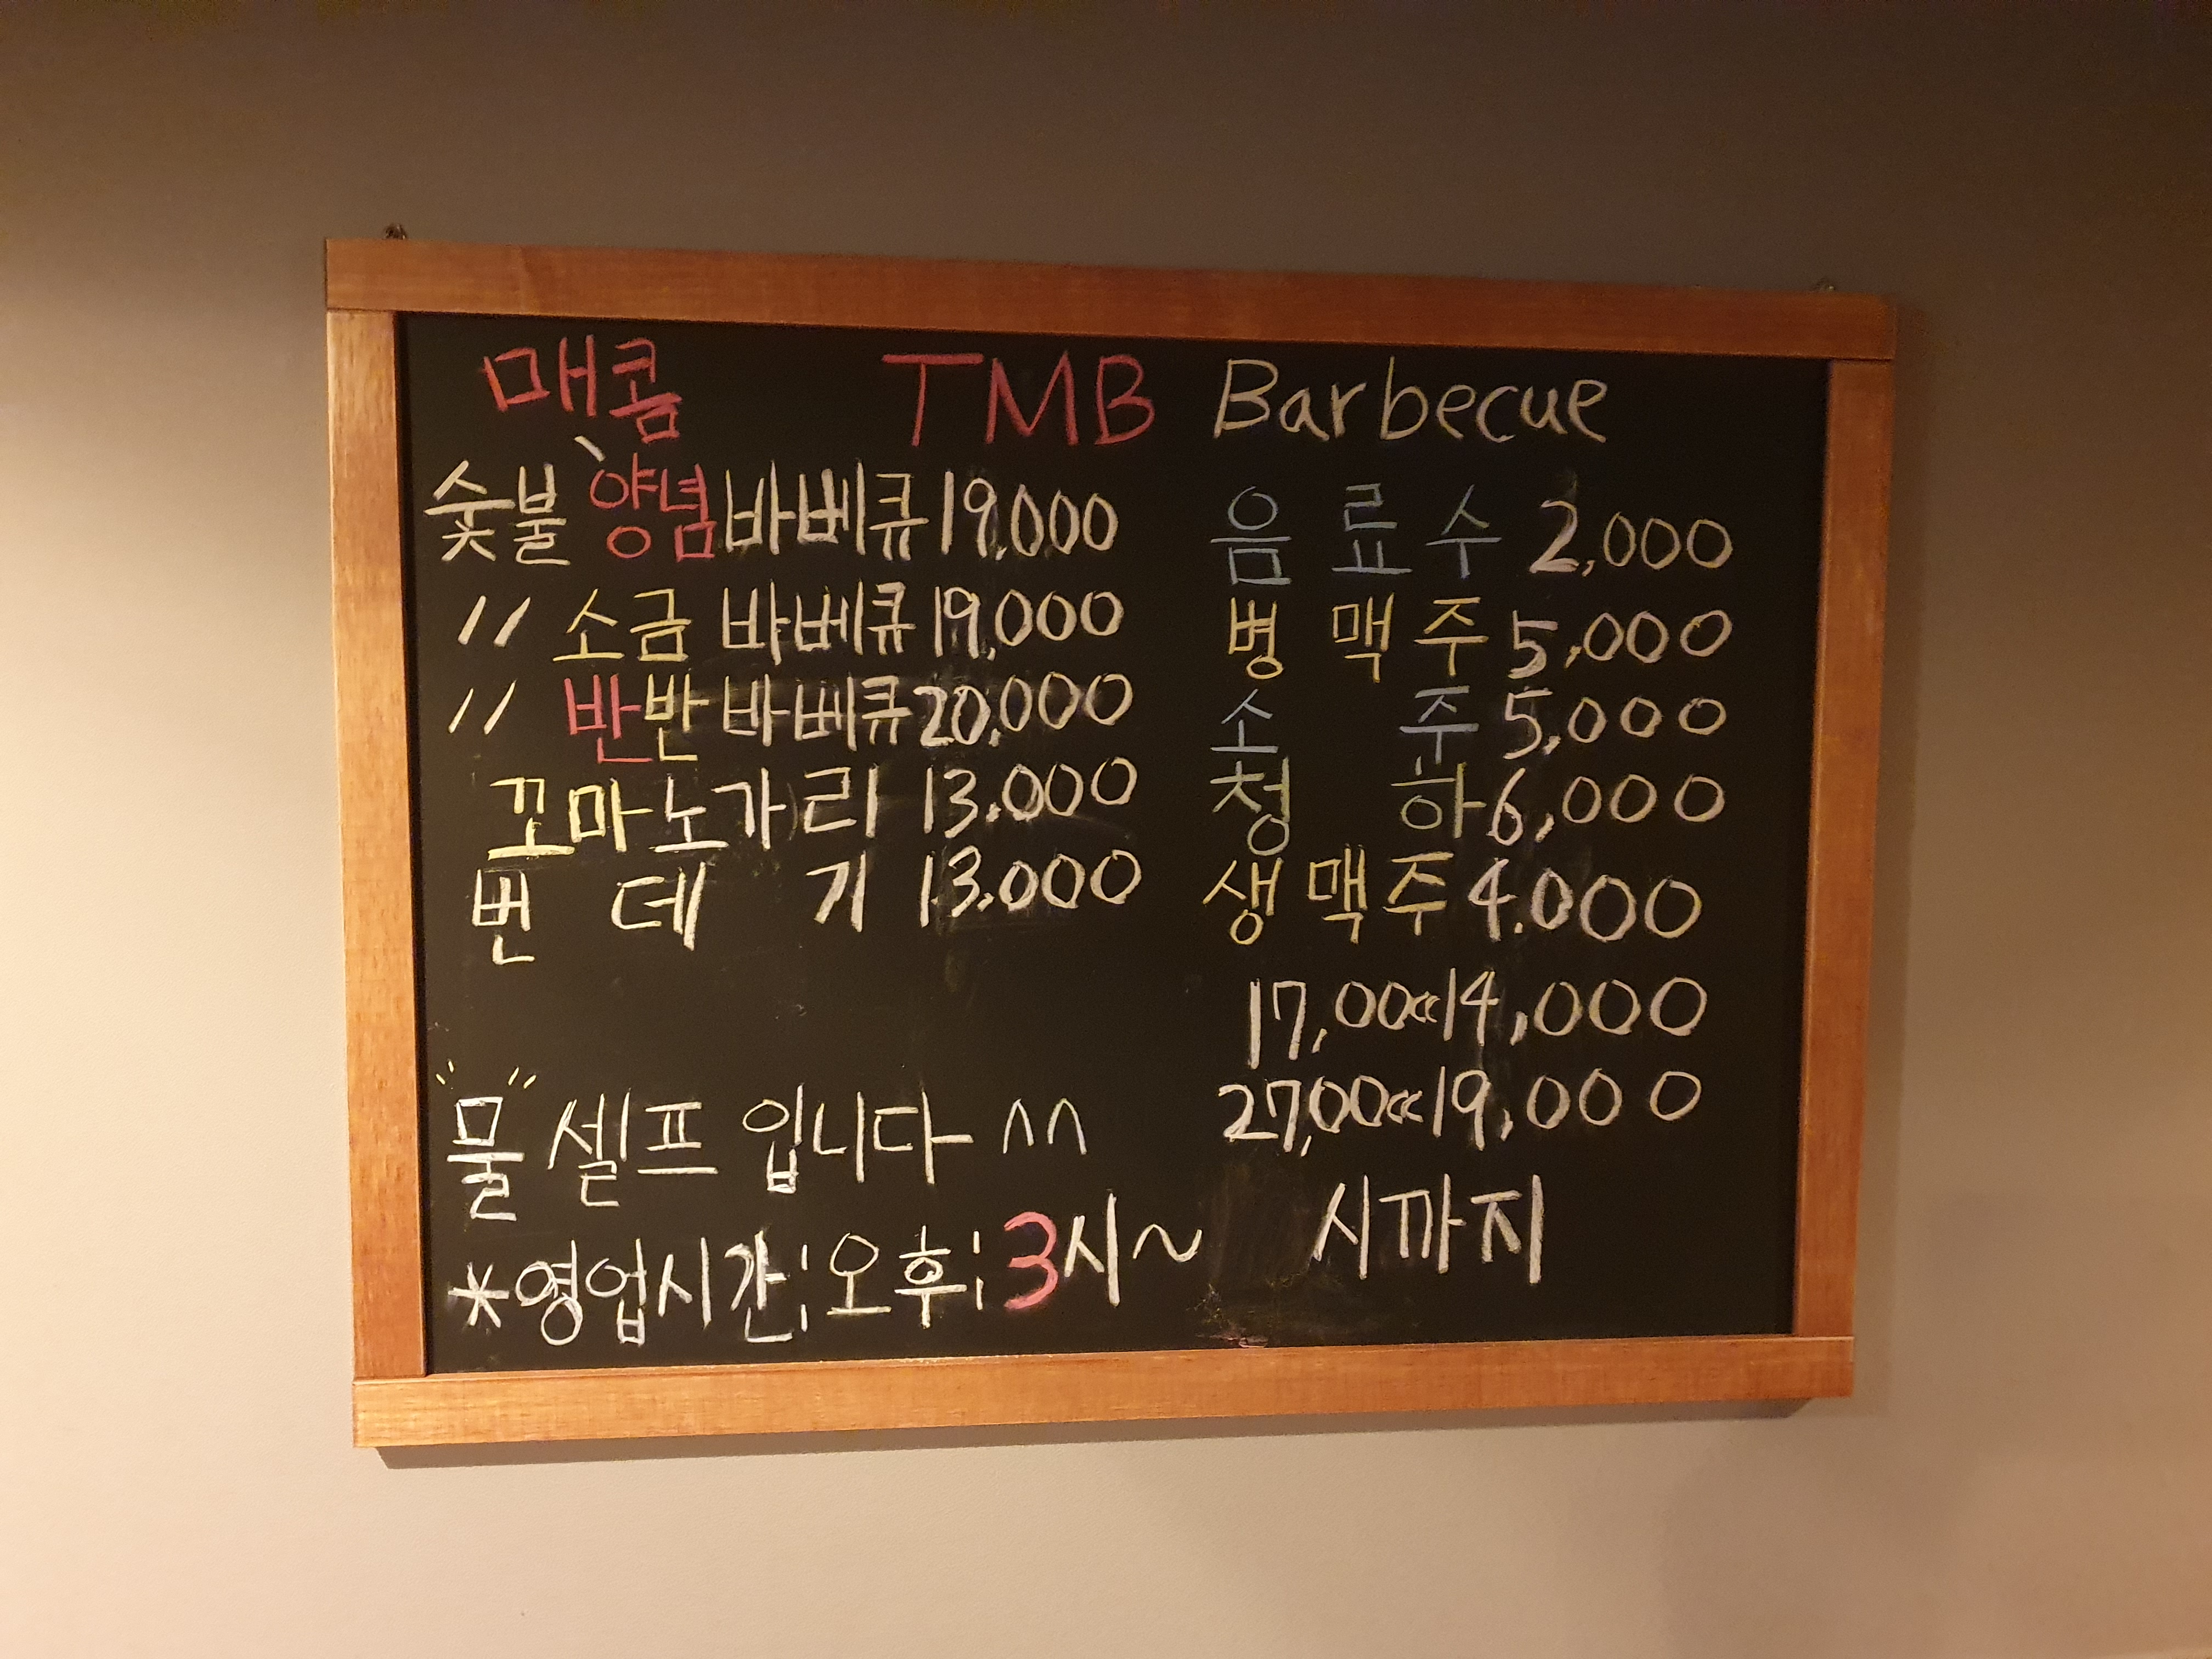 매콤 TMB Barbecue
숯불 양념 바베큐 19,000
〃 소금 바베큐 19,000
〃 반반 바베큐 20,000
꼬마노가리 13.000
번 데 기 13.000
음 료 수 2,000
병 맥 주 5,000
소 주 5,000
청 하 6,000
생 맥 주 4.000
17,00cc 14,000
27,00cc 19,000
물 셀프 입니다 ^^
*영업시간; 오후; 3시~ 시까지